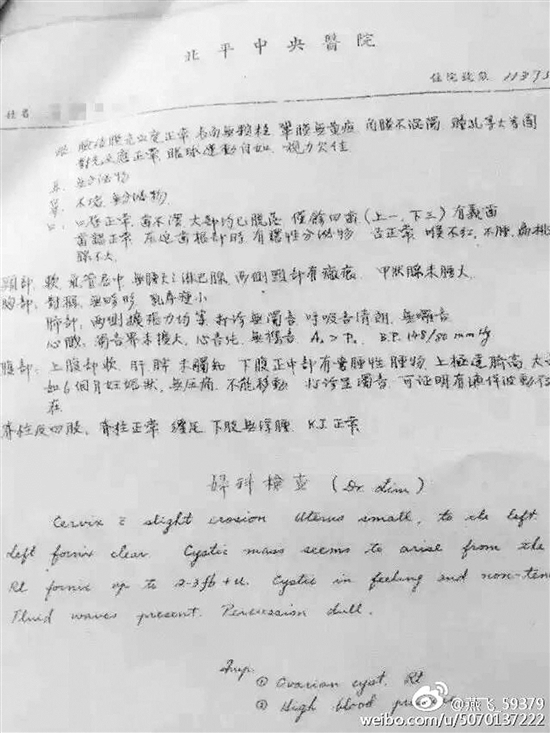 北平中央醫院
住院號數 11375
姓名
眼：瞼結膜充血度正常 表面無顆粒 鞏膜無黃疸 角膜不混濁 瞳孔等大等圓
對光反應正常 眼球運動自如 視力欠佳
耳：無分泌物
鼻：不堵 無分泌物
口：口唇正常 齒不潔 大部均已脫落 僅餘四齒（上一、下三）有義齒
齒齦正常 左邊齒根部時有膿性分泌物 舌正常 喉不紅，不腫，扁桃
腺不大
頸部：軟 氣管居中 無腫大之淋巴腺 兩側頸部有瘢痕 甲狀腺未腫大
胸部：對稱 無畸形 乳房痿小
肺部：兩側擴張力均等 打診無濁音 呼吸音清朗 無囉音
心臟：濁音界未擴大，心音純 無雜音 A₂ > P₂ B.P. 148/80 mmHg
腹部：上腹部軟 肝脾未觸知 下腹正中部有囊腫性腫物 上極達臍高，大
如6個月妊娠狀，無压痛 不能移動 打診呈濁音 可証明有液体波動存
在
脊柱及四肢：脊柱正常 纏足 下肢無浮腫 K.J. 正常
婦科檢查 (Dr. Lim)
Cervix c̄ slight erosion Uterus small, to the left
Left fornix clear. Cystic mass seems to arise from the
Rt fornix up to 2-3 fb + U. Cystic in feeling and non-ten
Fluid waves present. Percussion dull.
Imp:
① Ovarian cyst. Rt
② High blood
@燕飞_59379
weibo.com/u/5070137222